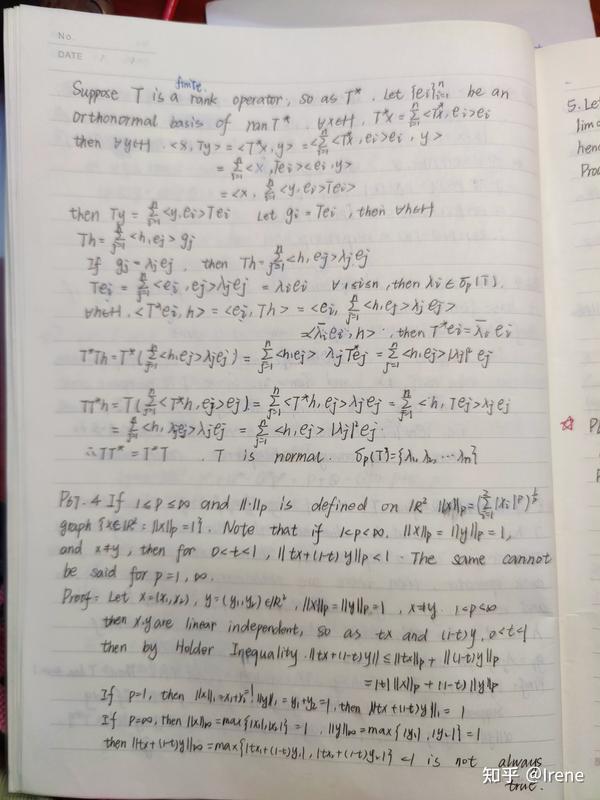 No.
DATE
finite
Suppose T is a rank operator, so as T*. Let {ei}ⁿᵢ₌₁ be an
orthonormal basis of ranT*. ∀x∈H. T*x = Σⁿᵢ₌₁<T*x, ei>ei
then ∀y∈H. <x, Ty> = <T*x, y> = <Σⁿᵢ₌₁<T*x, ei>ei, y>
= Σⁿᵢ₌₁<x, Tei><ei, y>
= <x, Σⁿᵢ₌₁<y, ei>Tei>
then Ty = Σⁿᵢ₌₁<y, ei>Tei Let gi = Tei, then ∀h∈H
Th = Σⁿⱼ₌₁<h, ej>gj
If gj = λjej, then Th = Σⁿⱼ₌₁<h, ej>λjej
Tei = Σⁿⱼ₌₁<ei, ej>λjej = λiei ∀ 1≤i≤n, then λi ∈ σp(T).
∀h∈H. <T*ei, h> = <ei, Th> = <ei, Σⁿⱼ₌₁<h, ej>λjej>
= <λ̄iei, h>, then T*ei = λ̄iei
T*Th = T*(Σⁿⱼ₌₁<h, ej>λjej) = Σⁿⱼ₌₁<h, ej>λjT*ej = Σⁿⱼ₌₁<h, ej>|λj|²ej
TT*h = T(Σⁿⱼ₌₁<T*h, ej>ej) = Σⁿⱼ₌₁<T*h, ej>λjej = Σⁿⱼ₌₁<h, Tej>λjej
= Σⁿⱼ₌₁<h, λjej>λjej = Σⁿⱼ₌₁<h, ej>|λj|²ej.
∴TT* = T*T. T is normal. σp(T)={λ1, λ2, ⋯λn}
P67.4 If 1≤p≤∞ and ||·||p is defined on ℝ² ||x||p = (Σ²ᵢ₌₁|xi|ᵖ)^(1/p)
graph {x∈ℝ² = ||x||p = 1}. Note that if 1<p<∞. ||x||p = ||y||p = 1,
and x≠y, then for 0<t<1, ||tx+(1-t)y||p < 1. The same cannot
be said for p=1, ∞.
Proof= Let x=(x1,x2), y=(y1,y2)∈ℝ², ||x||p=||y||p=1, x≠y. 1<p<∞
then x.y are linear independent, so as tx and (1-t)y, 0<t<1
then by Holder Inequality. ||tx+(1-t)y||≤||tx||p + ||(1-t)y||p
= |t| ||x||p + (1-t)||y||p
If p=1, then ||x||1 = x1+x2=1 ||y||1 = y1+y2=1, then ||tx+(1-t)y||1 = 1
If p=∞, then ||x||∞=max{|x1|,|x2|}=1, ||y||∞=max{|y1|, |y2|}=1
then ||tx+(1-t)y||∞=max{|tx1+(1-t)y1|, |tx2+(1-t)y2|} <1 is not always
true.
5. Let
hence
Proo
知乎 @Irene